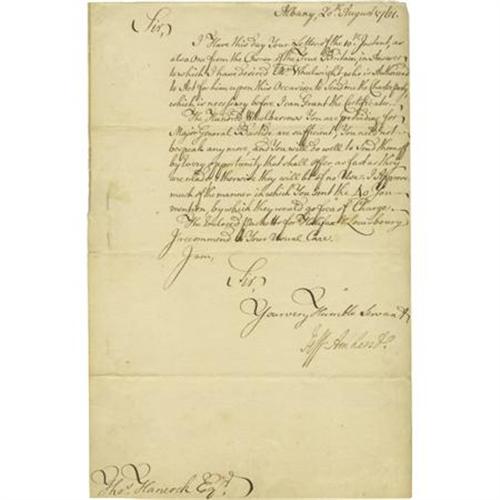 Albany, 20th August 1761.
Sir,
I Have this day Your Letter of the 10th Instant, as
also One from the Owner of the True Britain, in Answer
to which I have desired Mr Wheelwright who is Authorized
to Act for him upon this Occasion to Send me the Charter party
which is necessary before I can Grant the Certificate.
The Hundred Wheelbarrows You are providing for
Major General Bastide are sufficient, You need not
bespeak any more, and You will do well to Send them off
by Every opportunity that shall offer as fast as they
are made, otherwise they will be of no Use. I Approve
much of the manner in which You Sent the 40 You
mention, by which they would go free of Charge.
The Enclosed Packetts for Halifax & Louisbourg
I recommend to Your Usual Care.
I am,
Sir,
Your very Humble Servant
Jeff: Amherst
Thos. Hancock Esqr.